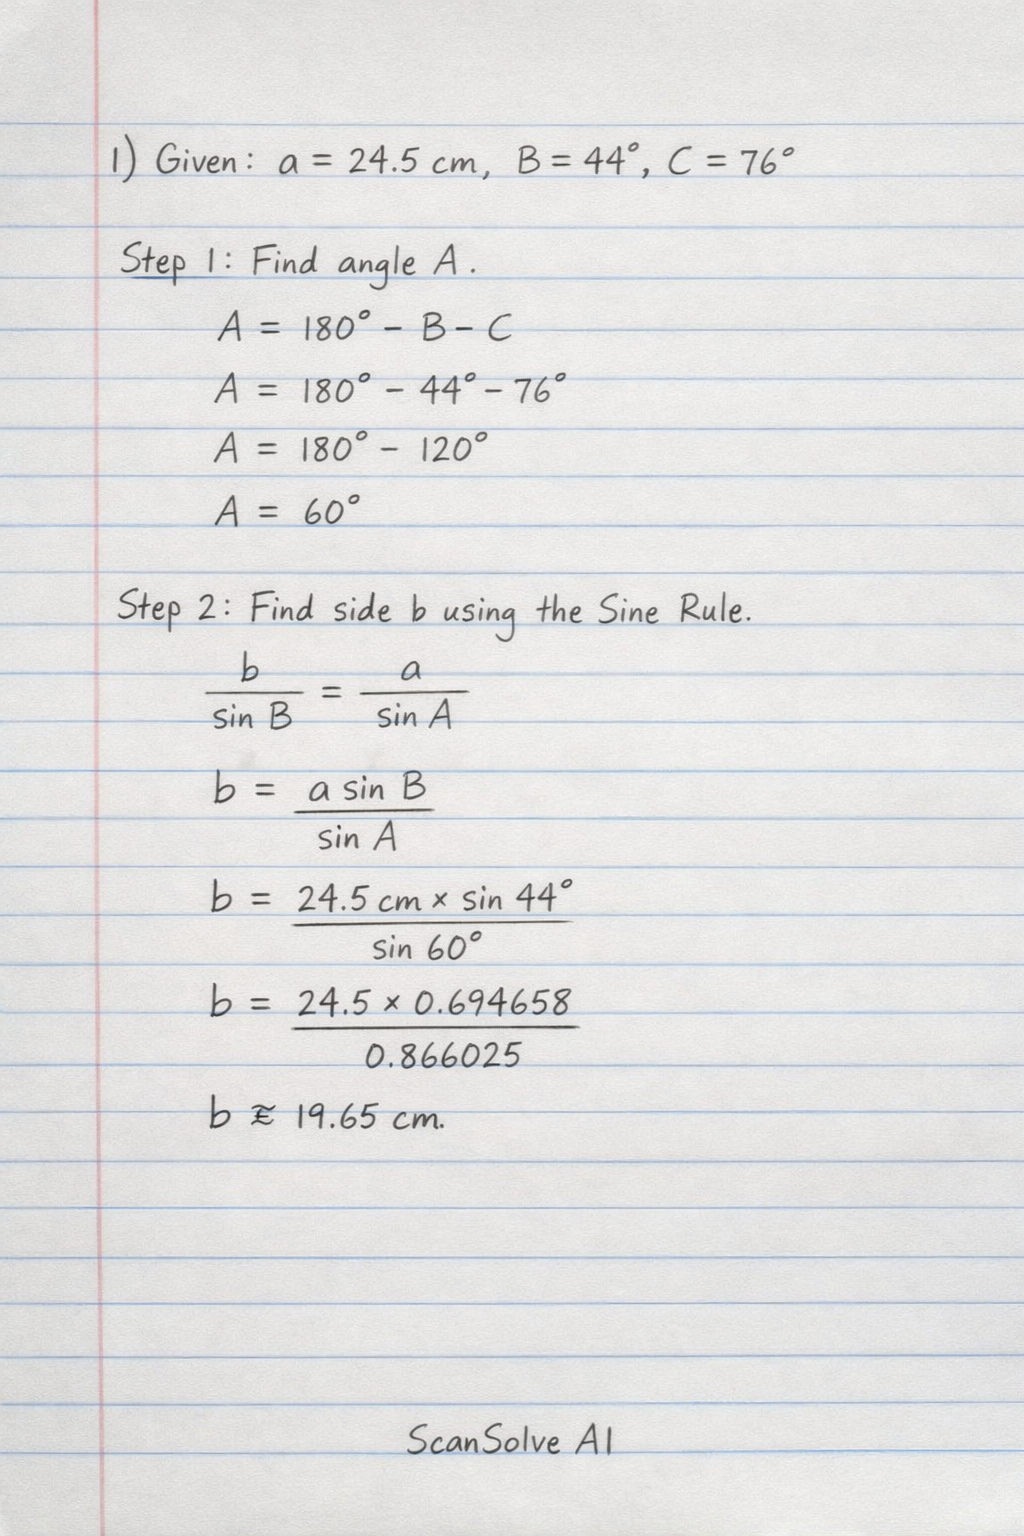 1) Given: a = 24.5 cm, B = 44°, C = 76°
Step 1: Find angle A.
A = 180° - B - C
A = 180° - 44° - 76°
A = 180° - 120°
A = 60°
Step 2: Find side b using the Sine Rule.
b / sin B = a / sin A
b = a sin B / sin A
b = 24.5 cm × sin 44° / sin 60°
b = 24.5 × 0.694658 / 0.866025
b ≈ 19.65 cm.
ScanSolve AI